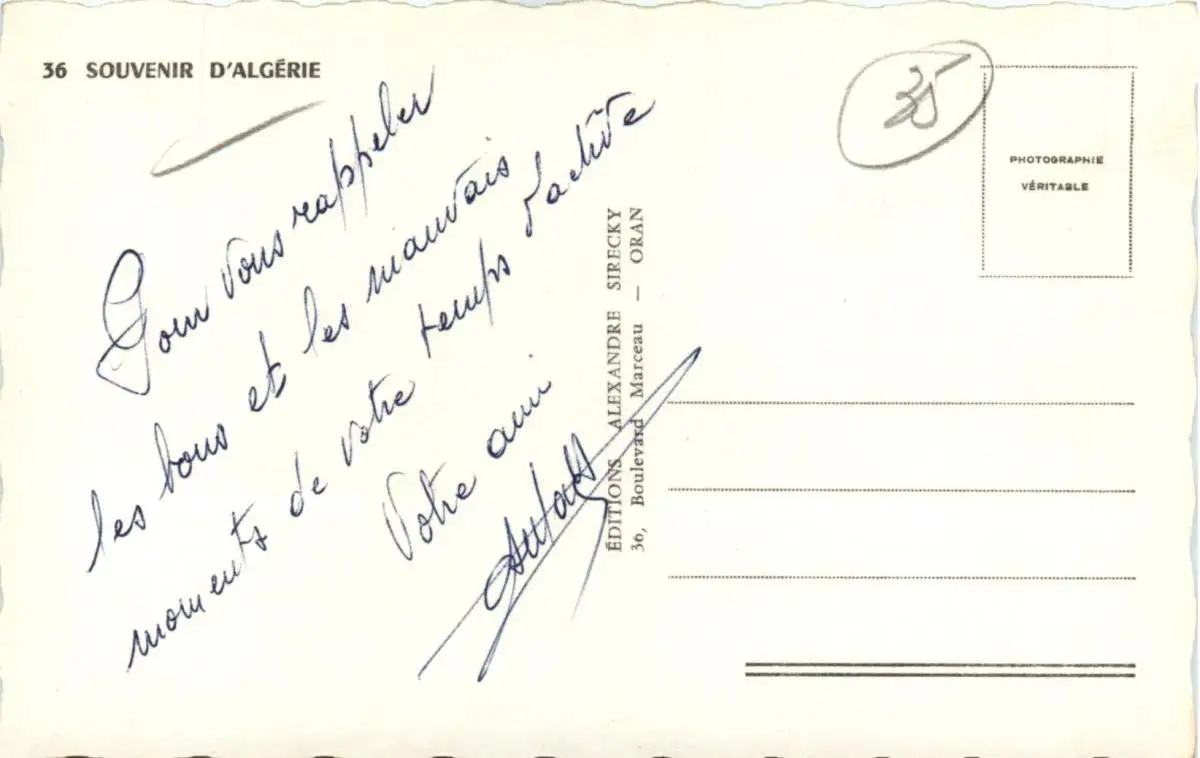 36 SOUVENIR D'ALGÉRIE
Pour vous rappeler
les bons et les mauvais
moments de votre temps d'active
Votre ami
35
PHOTOGRAPHIE
VÉRITABLE
ÉDITIONS ALEXANDRE SIRECKY
36, Boulevard Marceau — ORAN